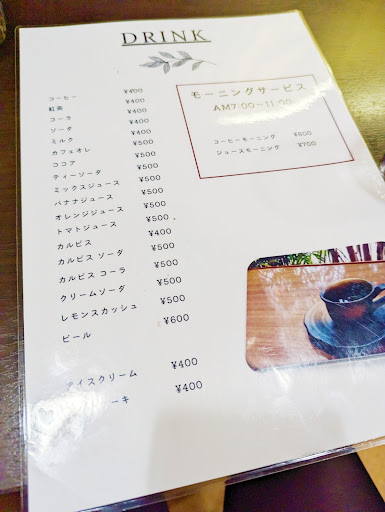 DRINK
コーヒー ¥400
紅茶 ¥400
コーラ ¥400
ソーダ ¥400
ミルク ¥400
カフェオレ ¥500
ココア ¥500
ティーソーダ ¥500
ミックスジュース ¥500
バナナジュース ¥500
オレンジジュース ¥500
トマトジュース ¥500
カルピス ¥400
カルピス ソーダ ¥500
カルピス コーラ ¥500
クリームソーダ ¥500
レモンスカッシュ ¥500
ビール ¥600
アイスクリーム ¥400
¥400
モーニングサービス
AM7:00~11:00
コーヒーモーニング ¥600
ジュースモーニング ¥700